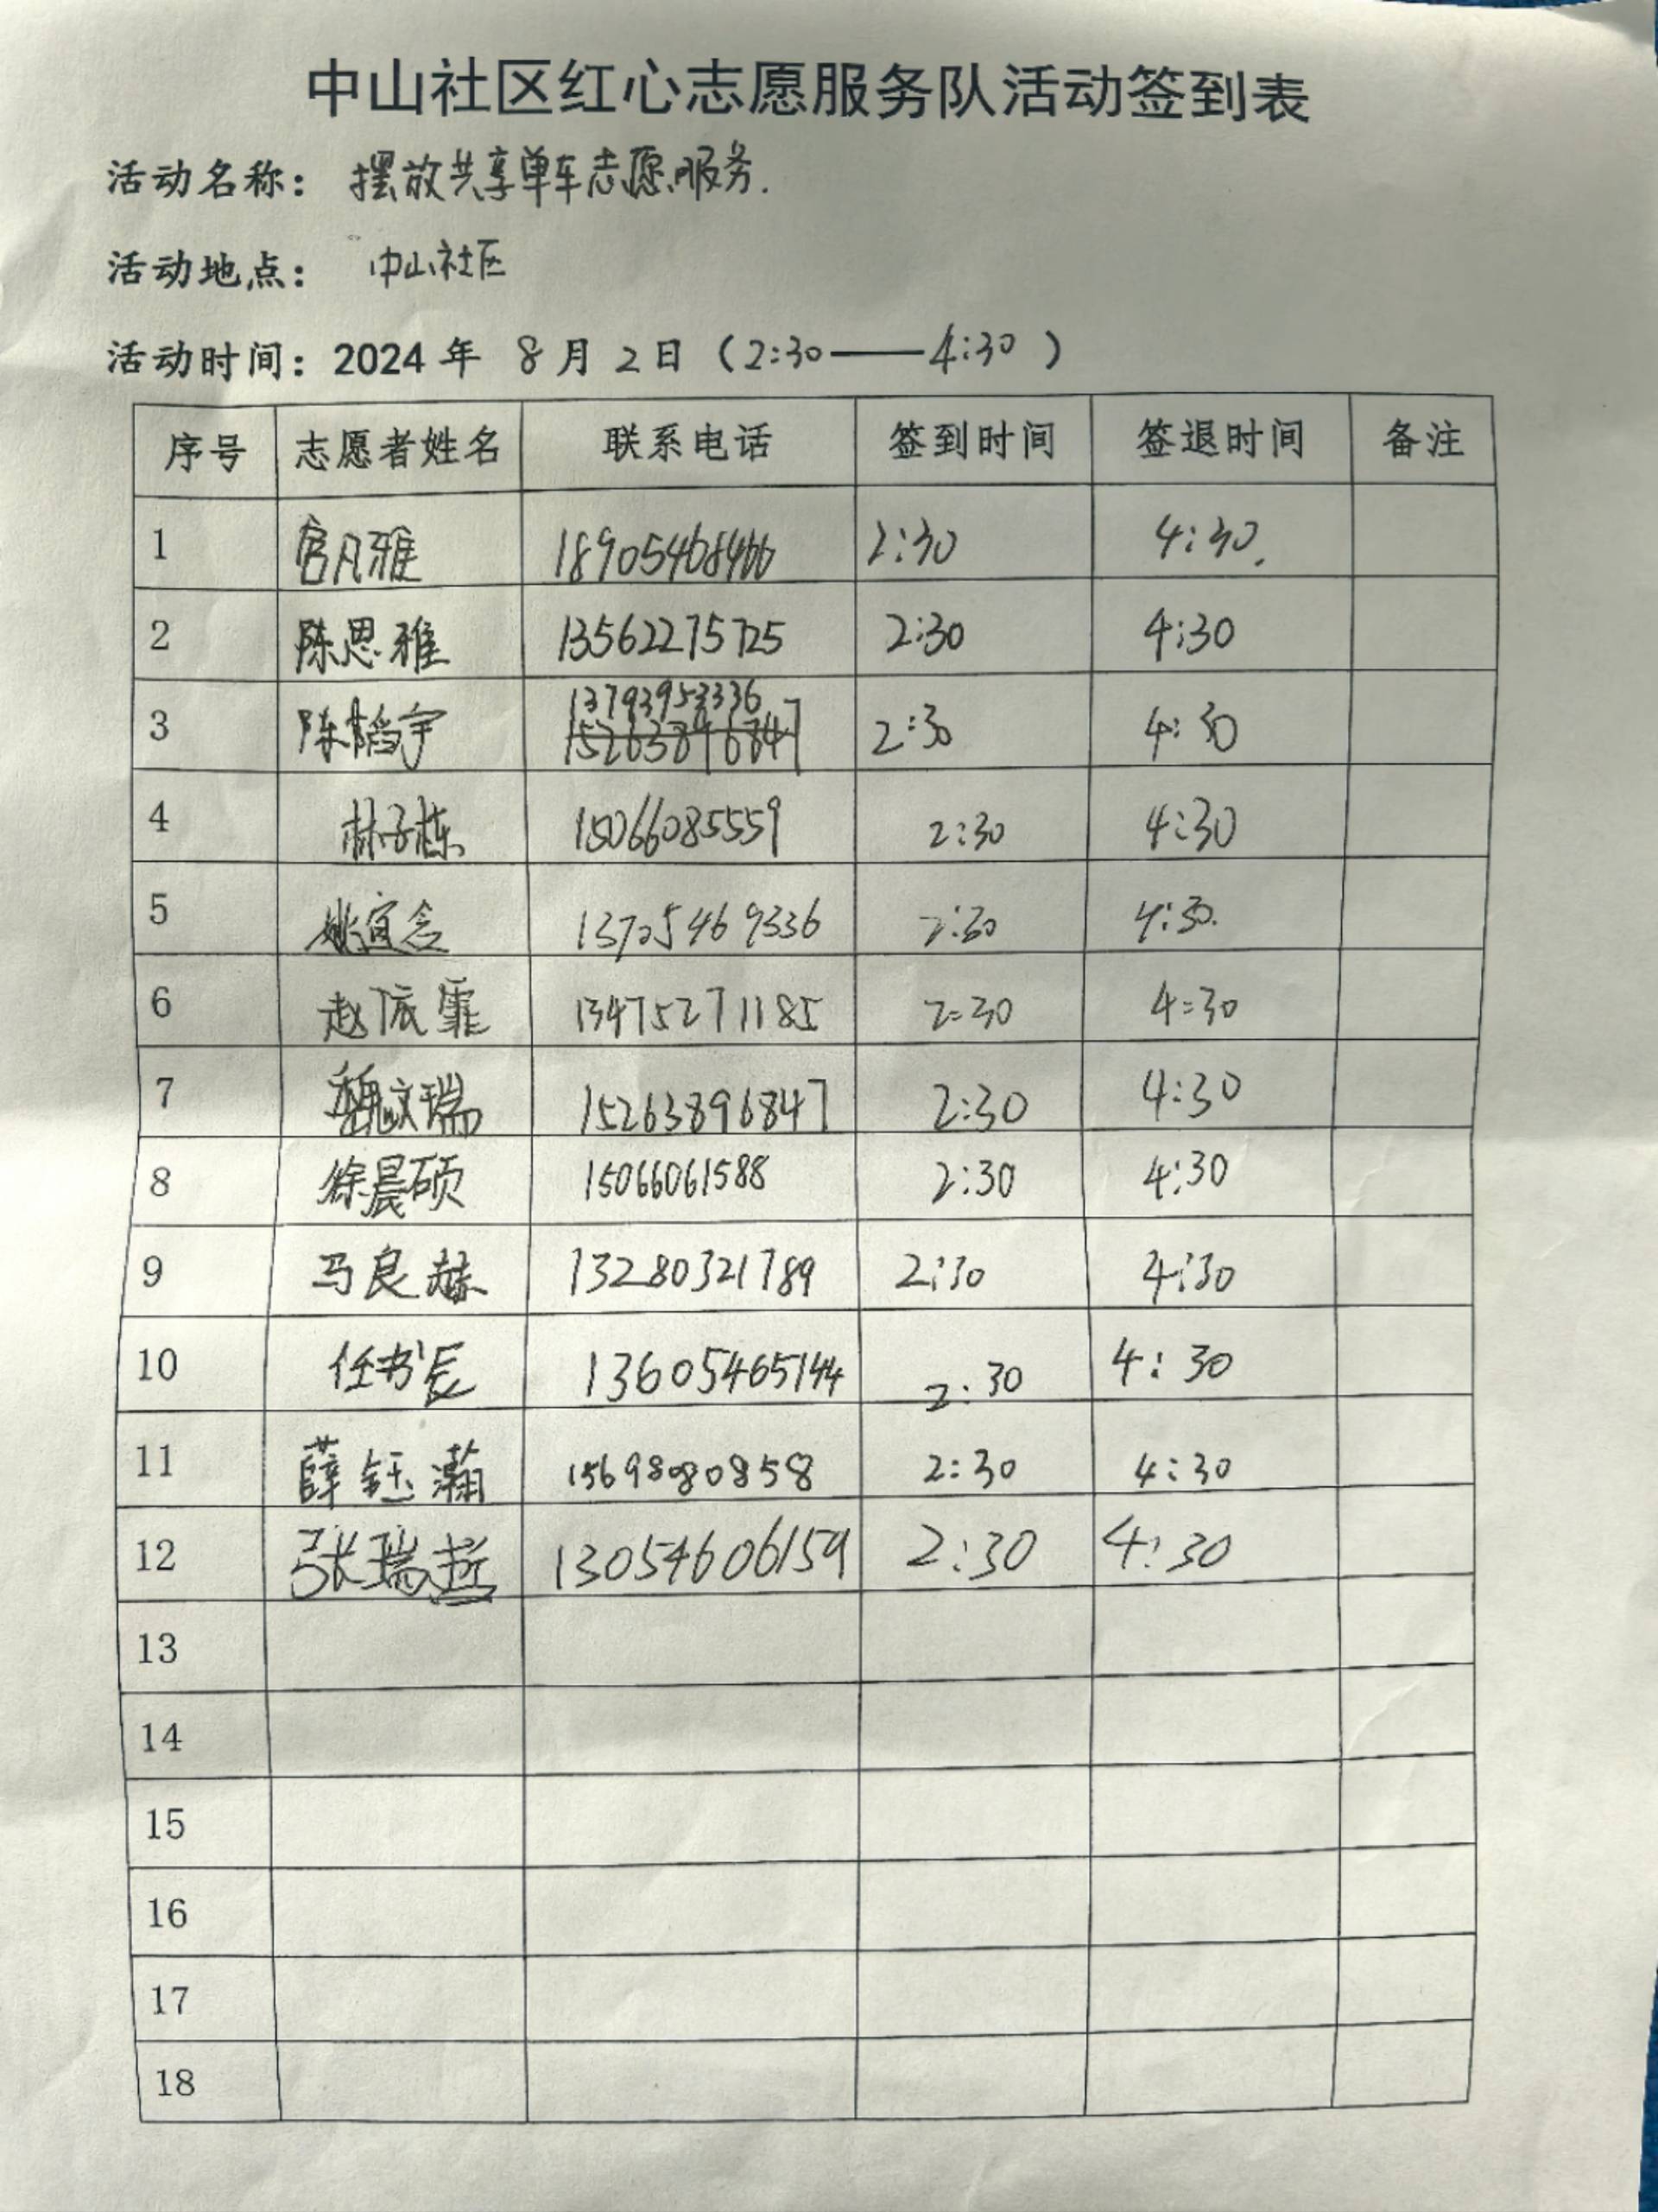 中山社区红心志愿服务队活动签到表
活动名称： 摆放共享单车志愿服务.
活动地点： 中山社区
活动时间：2024 年 8 月 2 日（2:30——4:30 ）
序号 志愿者姓名 联系电话 签到时间 签退时间 备注
1 官凡雅 18905468466 2:30 4:30.
2 陈思雅 13562275725 2:30 4:30
13793953336
3 陈韬宇 15263896847 2:30 4:30
4 林子栋 15066085559 2:30 4:30
5 姚宜含 13705469336 2:30 4:30.
6 赵依霏 13475271185 2:30 4:30
7 魏文瑞 15263896847 2:30 4:30
8 徐晨硕 15066061588 2:30 4:30
9 马良赫 13280321789 2:30 4:30
10 任书辰 13605465144 2:30 4:30
11 薛钰瀚 15698080858 2:30 4:30
12 张瑞哲 13054606159 2:30 4:30
13
14
15
16
17
18